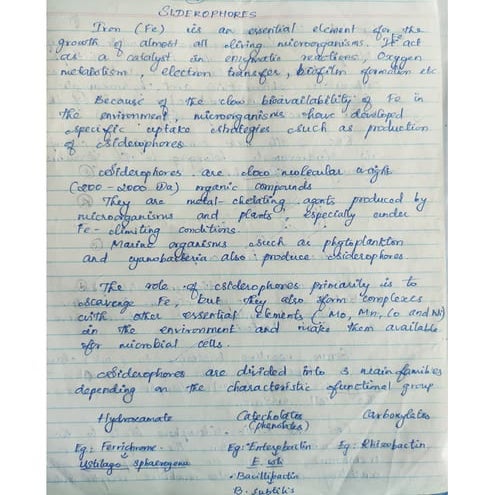 SIDEROPHORES
Iron (Fe) is an essential element for the
growth of almost all living microorganisms. It act Fe
as a catalyst in enzymatic reactions, Oxygen
metabolism, electron transfer, biofilm formation etc
Because of the low bioavailability of Fe in
the environment, microorganisms have developed
specific uptake strategies such as production
of siderophores
Siderophores are low molecular weight
(200 - 2000 Da) organic compounds
They are metal-chelating agents produced by
microorganisms and plants, especially under
Fe-limiting conditions.
Marine organisms such as phytoplankton
and cyanobacteria also produce siderophores.
The role of siderophores primarily is to
scavenge Fe, but they also form complexes
with other essential elements (Mo, Mn, Co and Ni)
in the environment and make them available
for microbial cells.
Siderophores are divided into 3 main families
depending on the characteristic functional group
Hydroxamate Catecholates Carboxylates
(phenolates)
Eg: Ferrichrome Eg: Enterobactin Eg: Rhizobactin
Ustilago sphaerogena E. coli
• Bacillibactin
B. subtilis